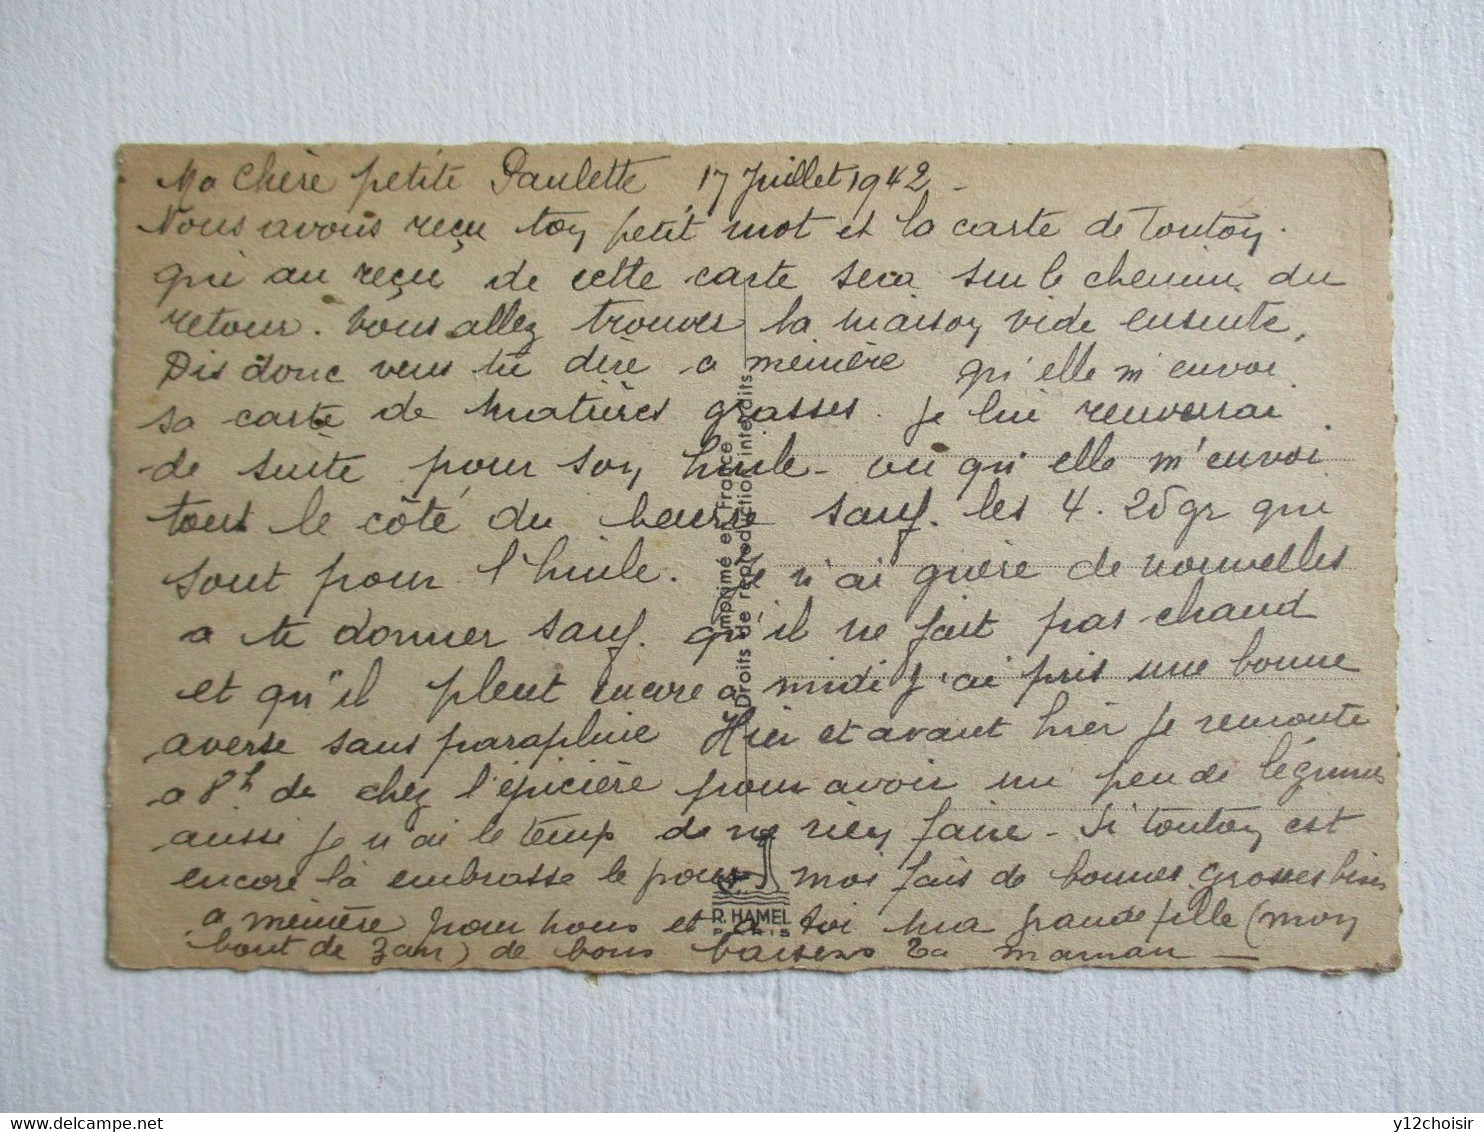 Ma chère petite Paulette 17 Juillet 1942 -
Nous avons reçu ton petit mot et la carte de Tonton.
qui au reçu de cette carte sera sur le chemin du
retour. Vous allez trouver la maison vide ensuite,
Dis donc veus tu dire a mémère qu'elle m'envoi
sa carte de matières grasses. je lui renverrai
de suite pour son huile - ou qu'elle m'envoi
tout le côté du beurre sauf. les 4. 25 gr qui
sont pour l'huile. Je n'ai guère de nouvelles
a te donner sauf. qu'il ne fait pas chaud
et qu'il pleut encore a midi j'ai pris une bonne
averse sans parapluie Hier et avant hier je remonte
a 8h de chez l'épicière pour avoir un peu de légumes
aussi je n'ai le temp de ne rien faire - Si tonton est
encore là embrasse le pour moi fais de bonnes grosses bises
a mémère pour nous et a toi ma grande fille (mon
bout de zan) de bons baisers ta maman —
Imprimé en France
Droits de reproduction interdits
R. HAMEL
PARIS
delcampe.net
y12choisir